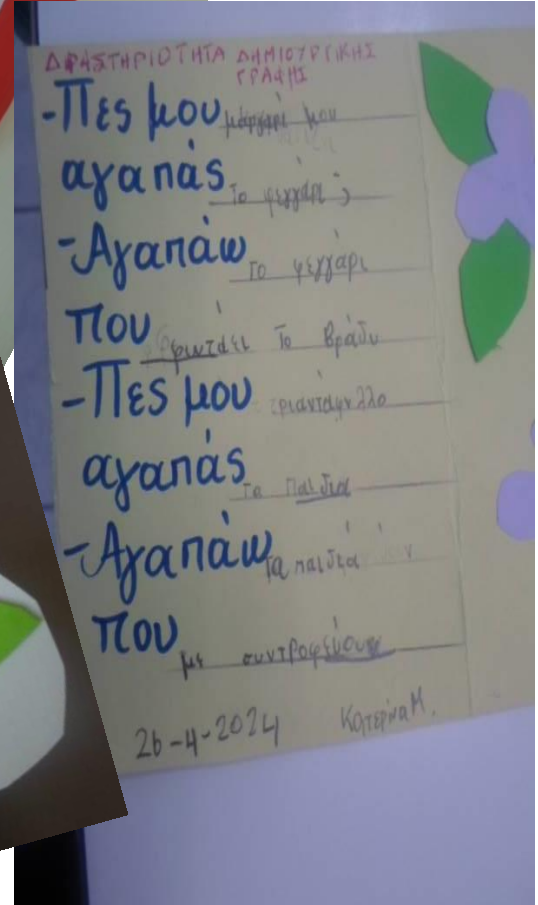 ΔΡΑΣΤΗΡΙΟΤΗΤΑ ΔΗΜΙΟΥΡΓΙΚΗΣ
ΓΡΑΦΗΣ
-Πες μου μου
αγαπάς το φεγγάρι;
-Αγαπάω το φεγγάρι
που φωτάει το βράδυ
-Πες μου τριαντάφυλλο
αγαπάς τα παιδιά
-Αγαπάω τα παιδιά
που με συντροφεύουν
26-4-2024 Κατερίνα Μ.